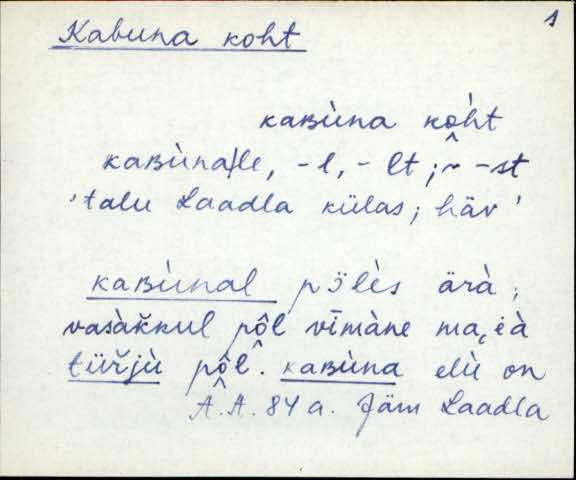 1
Kabuna koht
kaʙùna kò̭ht
kaʙùna/le, -l, -lt; ~ -st
'talu Laadla külas; häv'
kaʙùnal pȫlès ärà;
vasàk̆kul pôl vīmàne ma,ià
tür̆jù pôl. kaʙùna elù on
A.A. 84 a. Jäm Laadla